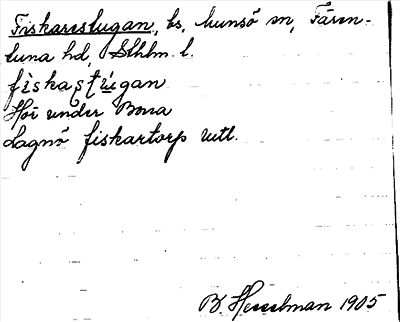 Fiskarestugan, ls, Munsö sn, Fären-
tuna hd, Sthlm. l.
fiskastugan
Hör under Bona
Lagnö fiskartorp uttl.
B. Hesselman 1905